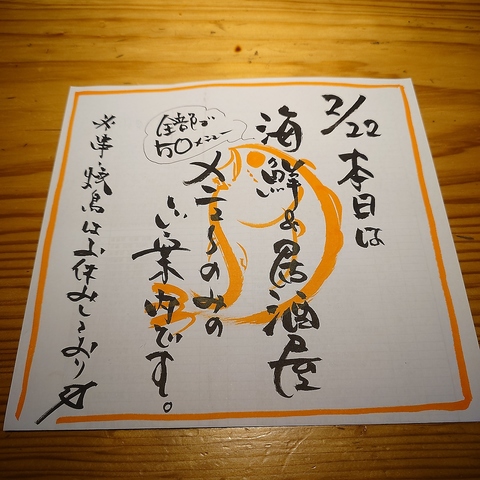 2/22 本日は
海鮮&居酒屋
全部で
50メニュー
メニューのみの
ご案内です。
※串・焼鳥はお休みしており〼